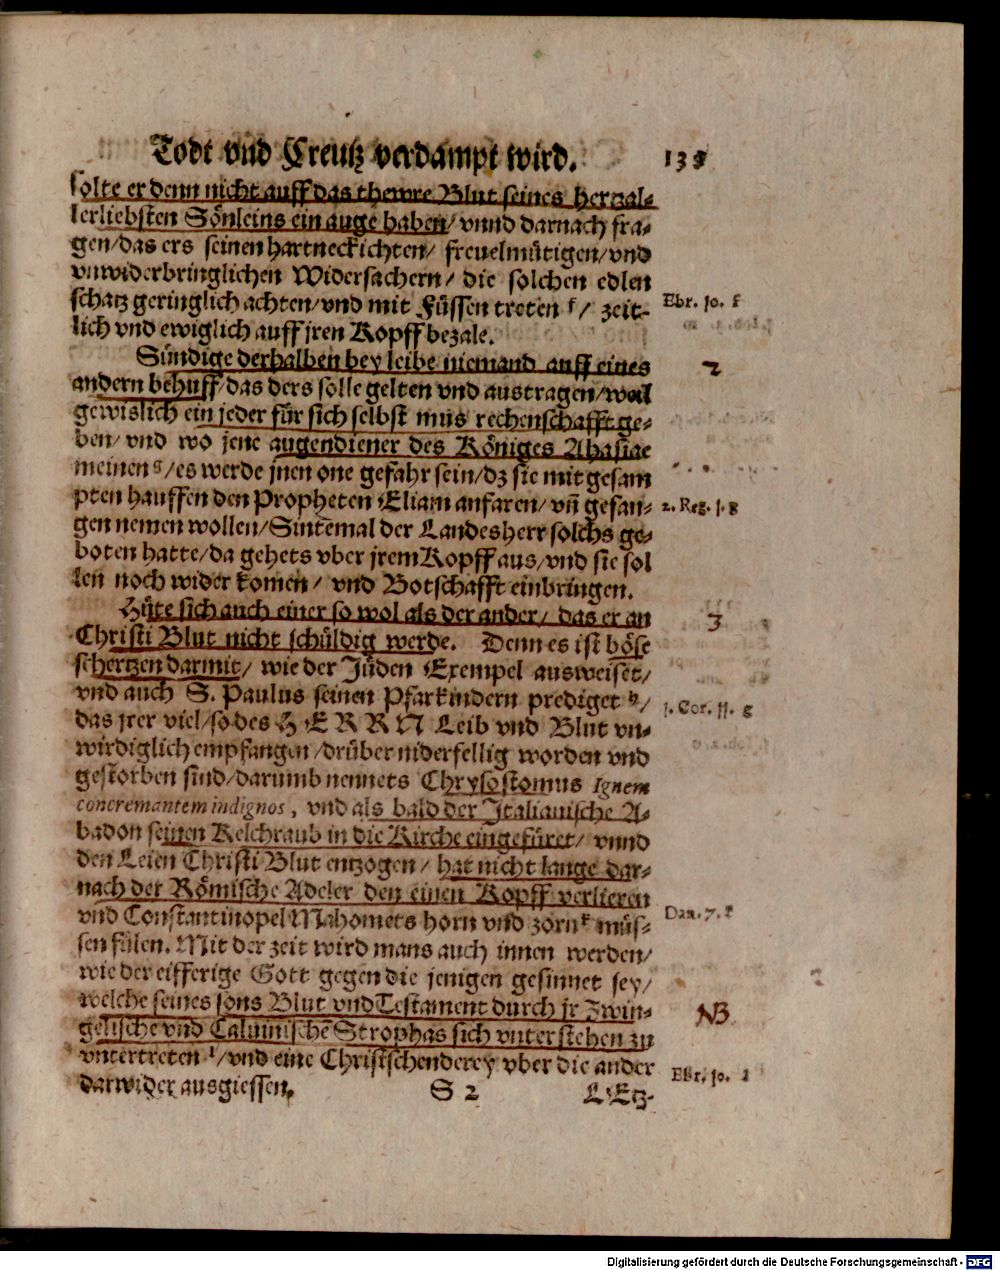 Todt vnd Creutz verdampt wird. 138
solte er denn nicht auff das thewre Blut seines hertzal-
lerliebsten Sönleins ein auge haben/ vnnd darnach fra-
gen/das ers seinen hartneckichten/ freuelmütigen/vnd
vnwiderbringlichen Widersachern/ die solchen edlen
schatz geringlich achten/vnd mit Füssen treten f/ zeit- Ebr. 10. f
lich vnd ewiglich auff jren Kopff bezale.
Sündige derhalben bey leibe niemand auff eines 2
andern behuff/das ders solle gelten vnd austragen/weil
gewislich ein jeder für sich selbst mus rechenschafft ge-
ben/ vnd wo jene augendiener des Königes Ahasiae
meinen g/es werde jnen one gefahr sein/dz sie mit gesam
pten hauffen den Propheten Eliam anfaren/ vñ gefan- 2. Reg. 1. g
gen nemen wollen/Sintemal der Landesherr solchs ge-
boten hatte/da gehets vber jrem Kopff aus/vnd sie sol
len noch wider komen/ vnd Botschafft einbringen.
Hüte sich auch einer so wol als der ander/ das er an 3
Christi Blut nicht schüldig werde. Denn es ist böse
schertzen darmit/ wie der Jüden Exempel ausweiset/
vnd auch S. Paulus seinen Pfarkindern prediget h/
das jrer viel/so des HERRN Leib vnd Blut vn- 1. Cor. 11.
wirdiglich empfangen/drüber niderfellig worden vnd
gestorben sind/darumb nennets Chrysostomus Ignem
concremantem indignos, vnd als bald der Italianische A-
badon seinen Kelchraub in die Kirche eingefüret/ vnnd
den Leien Christi Blut entzogen/ hat nicht lange dar-
nach der Römische Adeler den einen Kopff verlieren
vnd Constantinopel Mahomets horn vnd zorn k müs- Dan. 7.
sen fülen. Mit der zeit wird mans auch innen werden/
wie der eifferige Gott gegen die jenigen gesinnet sey/
welche seines sons Blut vnd Testament durch jr Zwin- NB
gelische vnd Caluinische Strophas sich vnterstehen zu
vntertreten l/vnd eine Christschenderey vber die ander Ebr. 10. l
darwider ausgiessen.
S 2 LEtz-
Digitalisierung gefördert durch die Deutsche Forschungsgemeinschaft - DFG